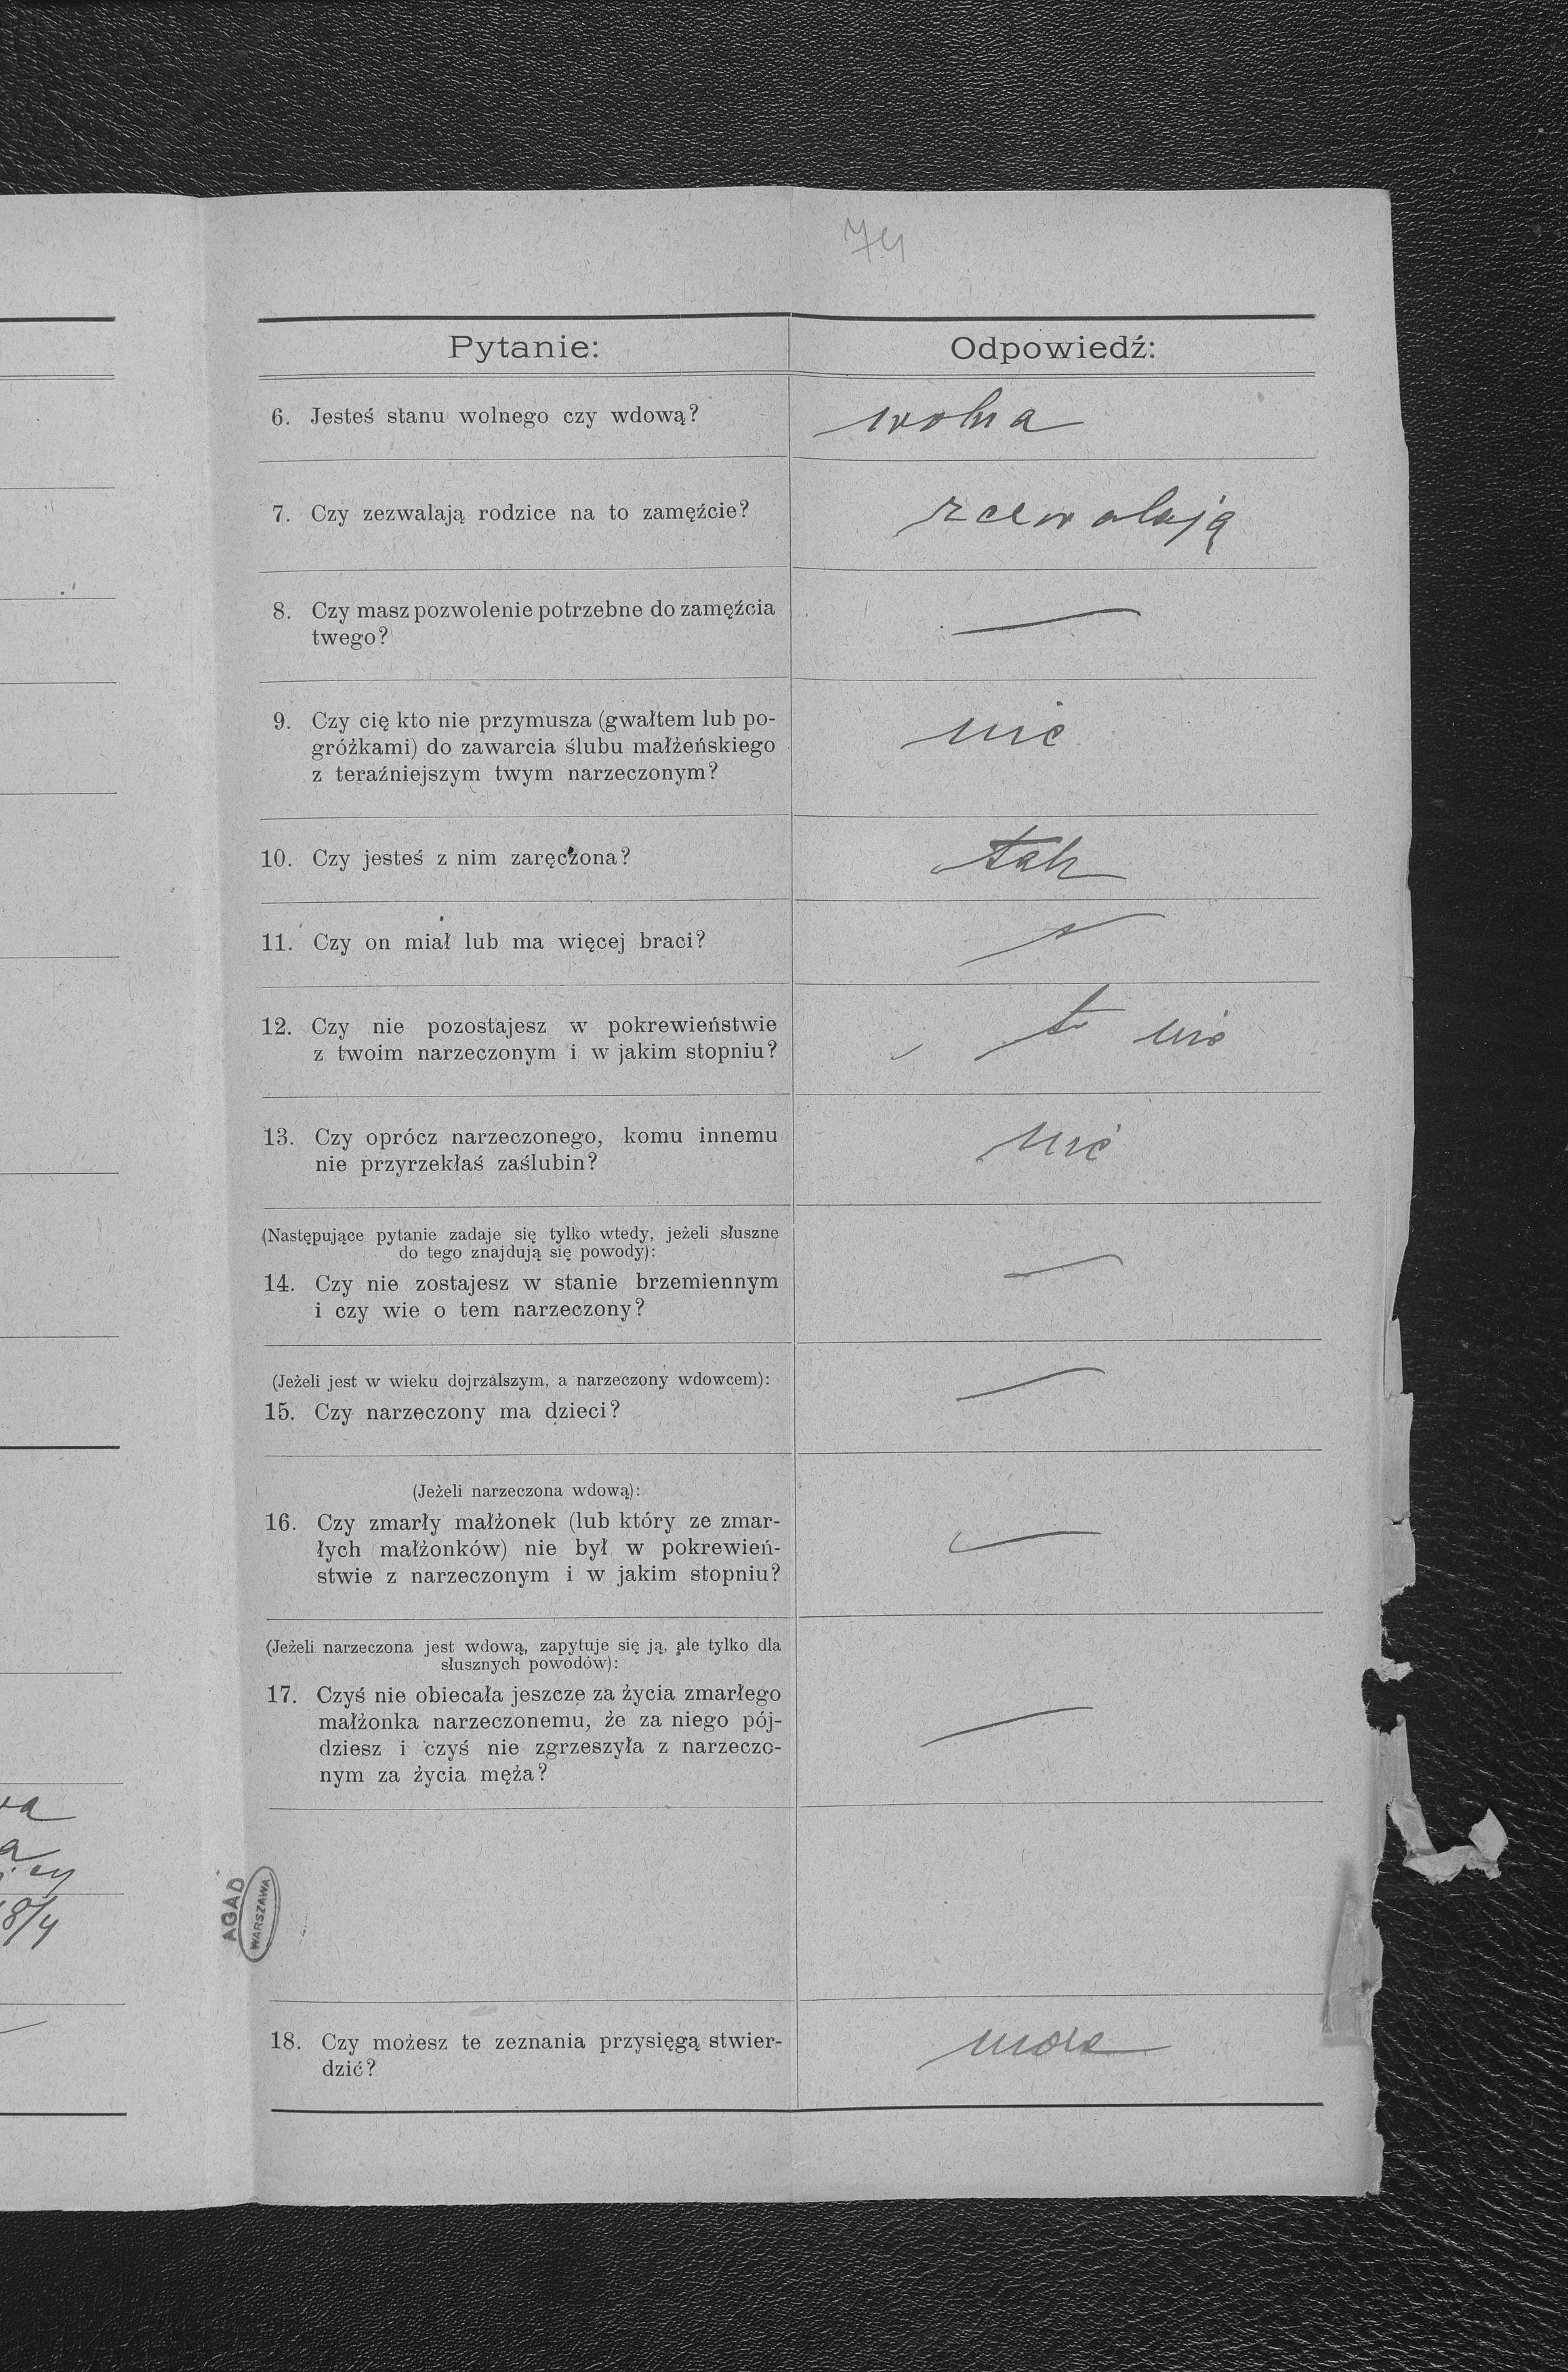 74
Pytanie:
Odpowiedź:
6. Jesteś stanu wolnego czy wdową?
wolna
7. Czy zezwalają rodzice na to zamęźcie?
zezwalają
8. Czy masz pozwolenie potrzebne do zamęźcia
twego?
—
9. Czy cię kto nie przymusza (gwałtem lub po-
gróżkami) do zawarcia ślubu małżeńskiego
z teraźniejszym twym narzeczonym?
nie
10. Czy jesteś z nim zaręczona?
tak
11. Czy on miał lub ma więcej braci?
12. Czy nie pozostajesz w pokrewieństwie
z twoim narzeczonym i w jakim stopniu?
nie
13. Czy oprócz narzeczonego, komu innemu
nie przyrzekłaś zaślubin?
nie
(Następujące pytanie zadaje się tylko wtedy, jeżeli słuszne
do tego znajdują się powody):
14. Czy nie zostajesz w stanie brzemiennym
i czy wie o tem narzeczony?
—
(Jeżeli jest w wieku dojrzalszym, a narzeczony wdowcem):
15. Czy narzeczony ma dzieci?
—
(Jeżeli narzeczona wdową):
16. Czy zmarły małżonek (lub który ze zmar-
łych małżonków) nie był w pokrewień-
stwie z narzeczonym i w jakim stopniu?
—
(Jeżeli narzeczona jest wdową, zapytuje się ją, ale tylko dla
słusznych powodów):
17. Czyś nie obiecała jeszcze za życia zmarłego
małżonka narzeczonemu, że za niego pój-
dziesz i czyś nie zgrzeszyła z narzeczo-
nym za życia męża?
—
AGAD
WARSZAWA
18. Czy możesz te zeznania przysięgą stwier-
dzić?